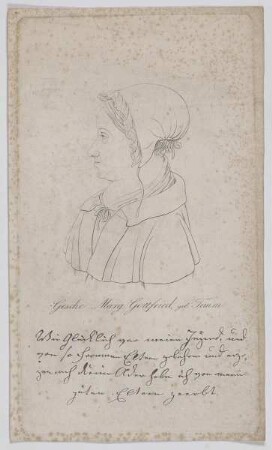 Gesche Marg. Gottfried, geb. Timm.
Wie Glücklich war meine Jugend, und
von so frommen Eltern gebohren und erz
auch diese Ader habe ich von mein
guten Eltern geerbt.